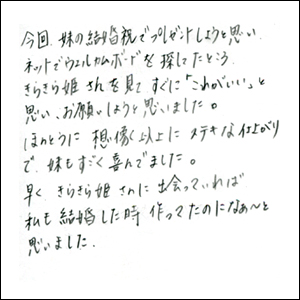 今回、妹の結婚祝でプレゼントしようと思い
ネットでウェルカムボードを探してたところ
きらきら姫さんを見てすぐに「これがいい」と
思い、お願いしようと思いました。
ほんとうに想像以上にステキな仕上がり
で、妹もすごく喜んでました。
早くきらきら姫さんに出会っていれば
私も結婚した時作ってたのになぁ〜と
思いました。